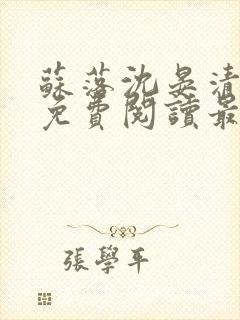 蘇落沈晏清
免費閱讀最
張學平